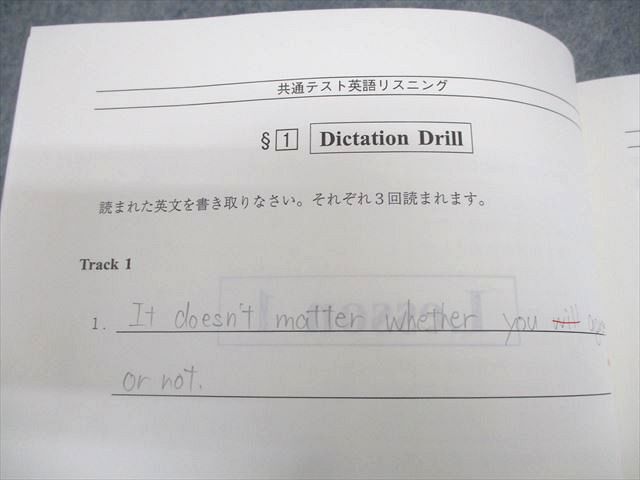 共通テスト英語リスニング
§ 1 Dictation Drill
読まれた英文を書き取りなさい。それぞれ3回読まれます。
Track 1
1. It doesn't matter whether you will
or not.